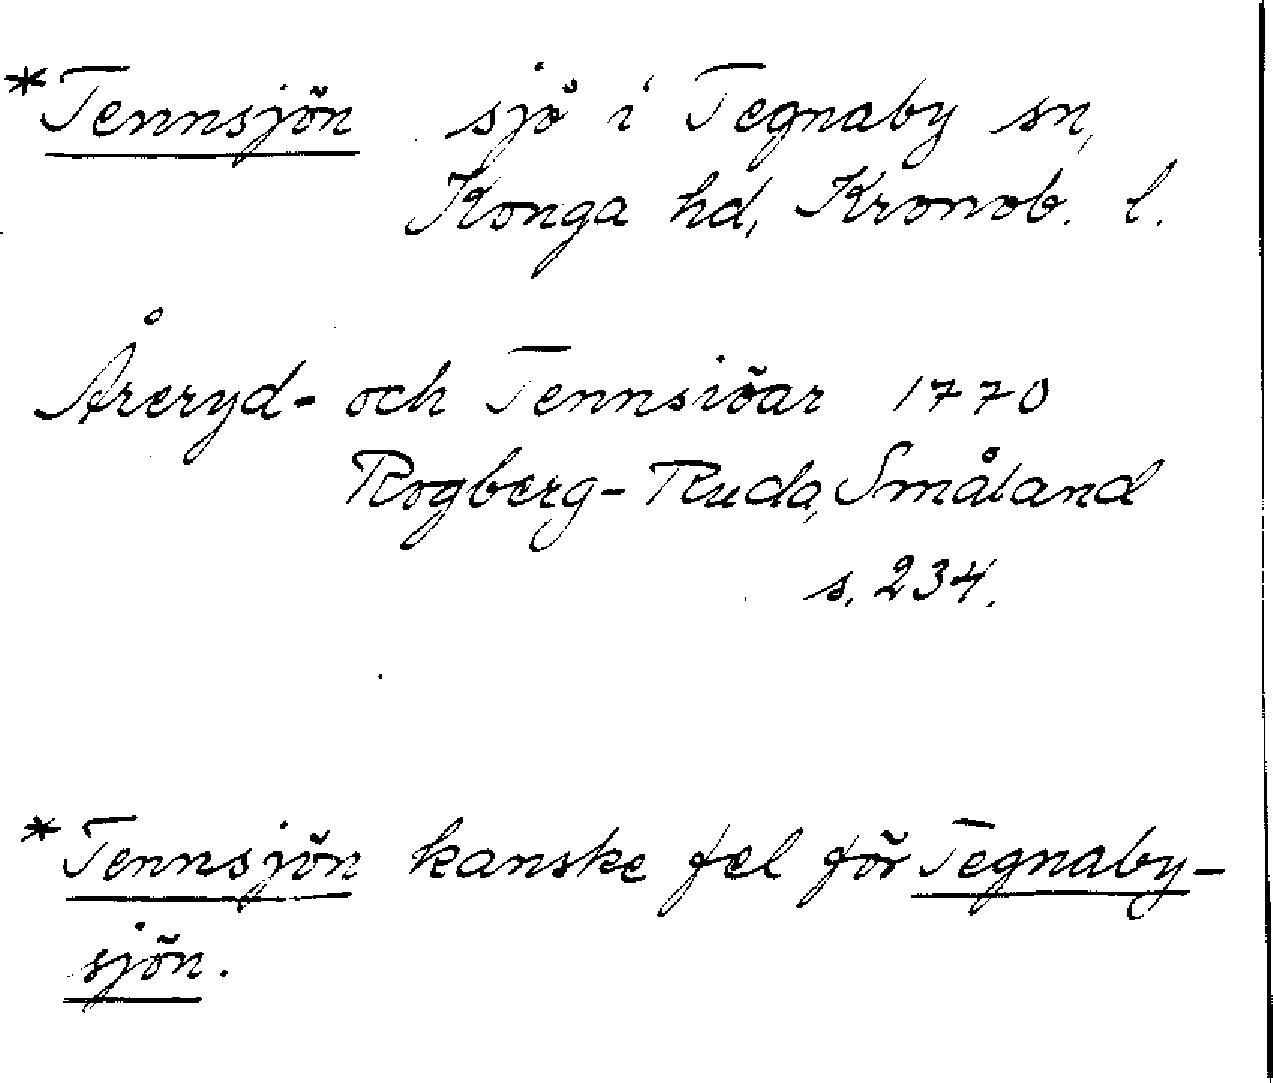 *Tennsjön sjö i Tegnaby sn,
Konga hd, Kronob. l.
Åreryd- och Tennsiöar 1770
Rogberg-Ruda, Småland
s. 234.
*Tennsjön kanske fel för Tegnaby-
sjön.